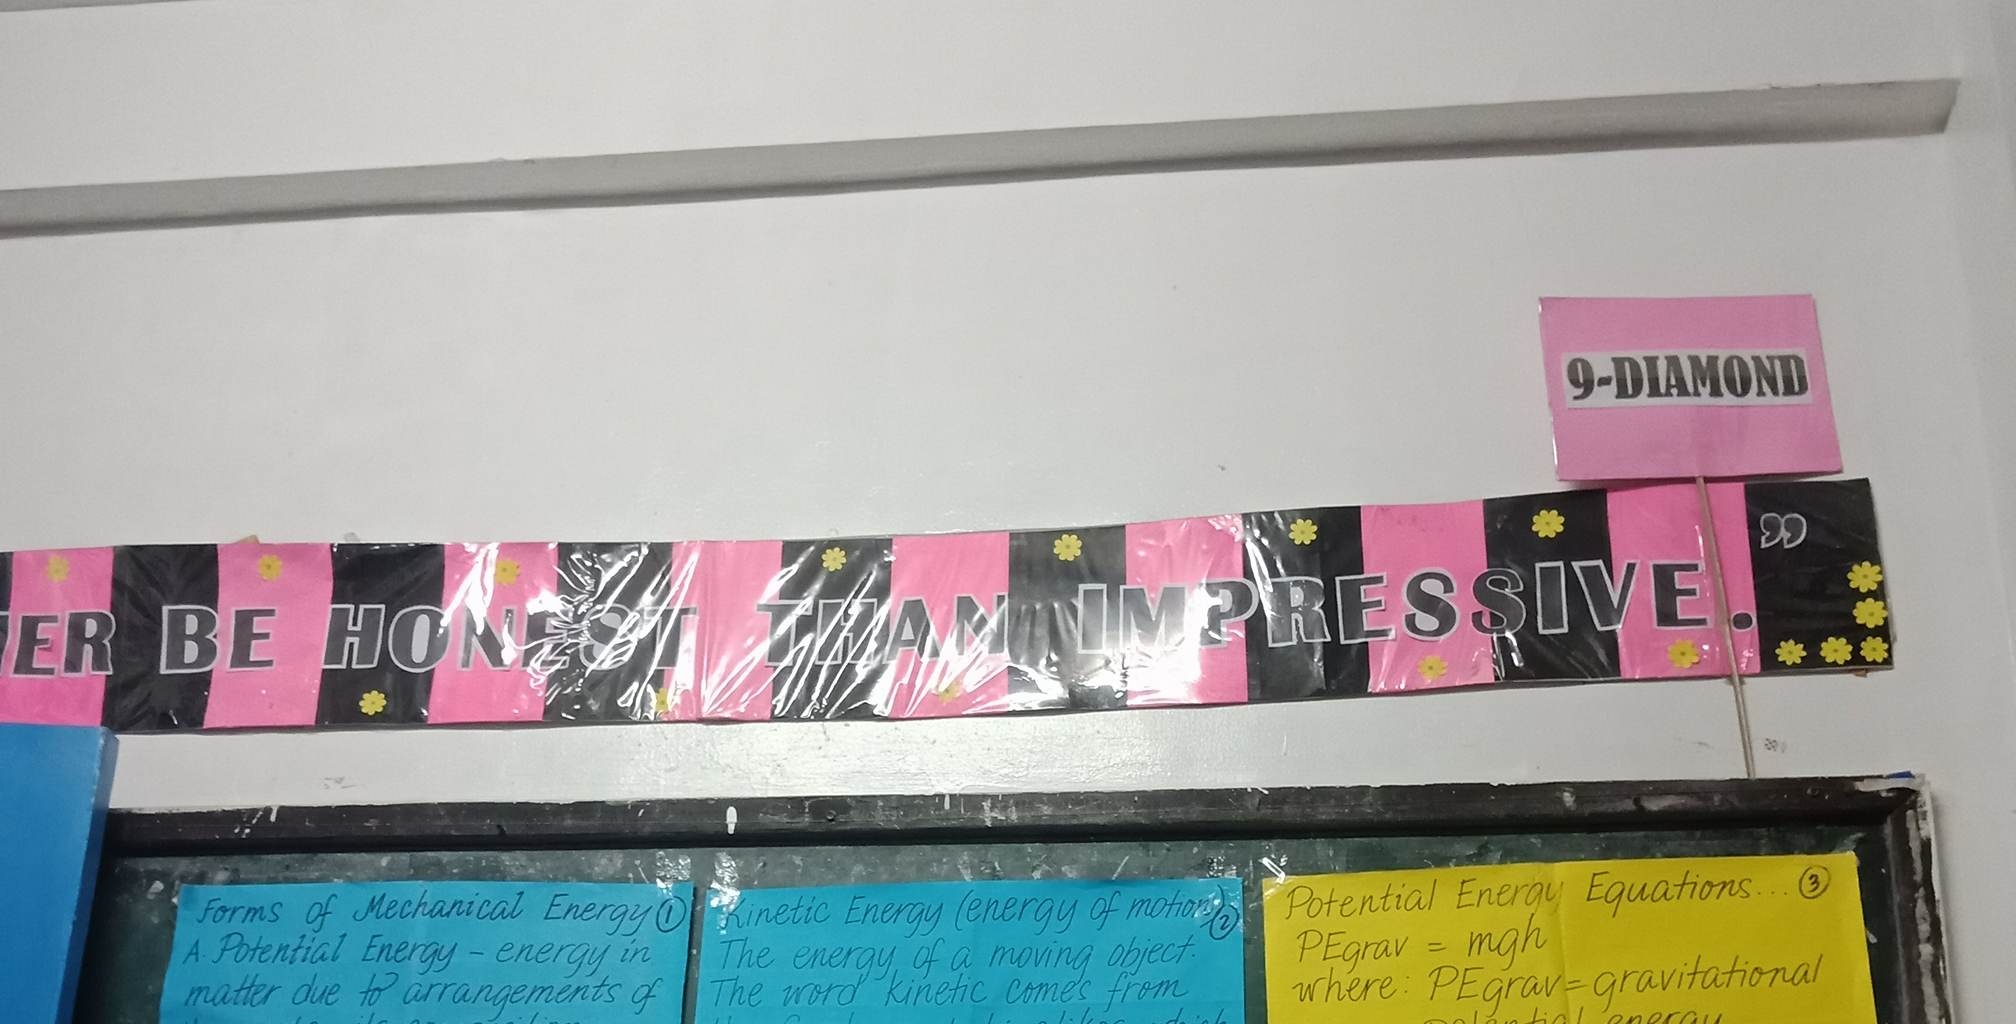 9-DIAMOND
ER BE HONEST THAN IMPRESSIVE.”
Forms of Mechanical Energy ①
A. Potential Energy - energy in
matter due to arrangements of
Kinetic Energy (energy of motion) ②
The energy of a moving object.
The word kinetic comes from
Potential Energy Equations... ③
PEgrav = mgh
where: PEgrav = gravitational
potential energy